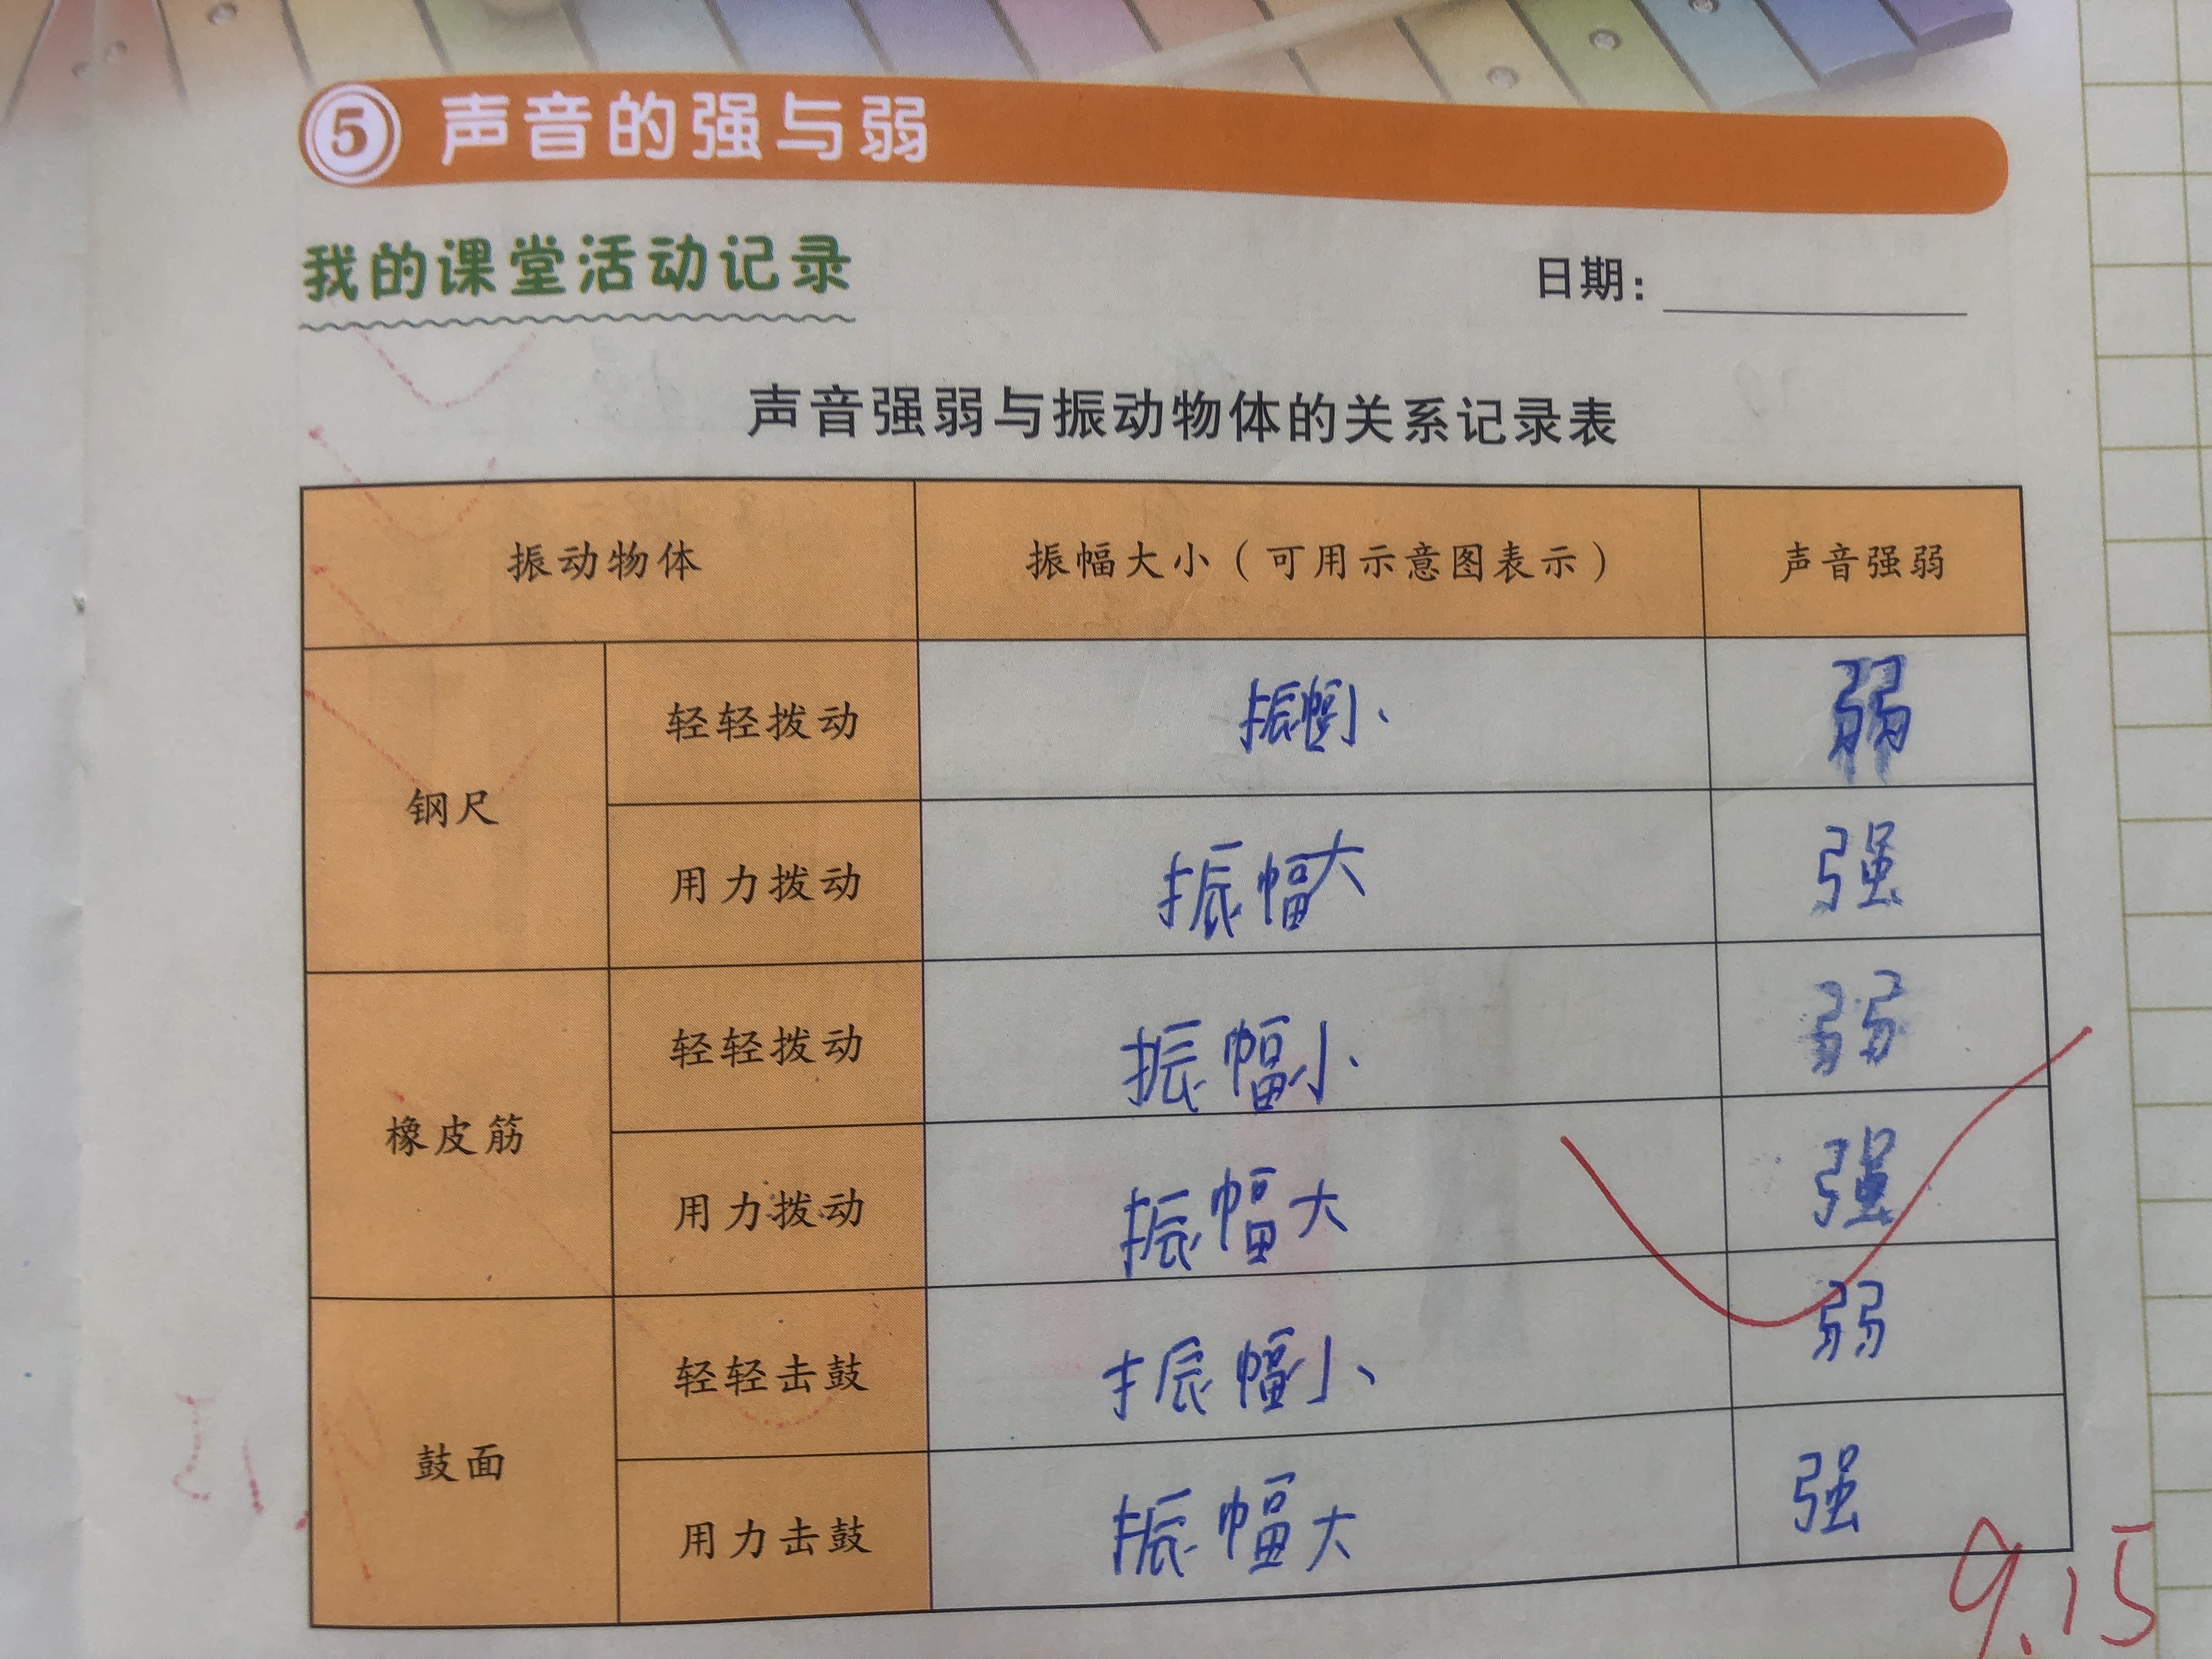 5 声音的强与弱
我的课堂活动记录
日期：
声音强弱与振动物体的关系记录表
振动物体 振幅大小（可用示意图表示） 声音强弱
钢尺 轻轻拨动 振幅小 弱
用力拨动 振幅大 强
橡皮筋 轻轻拨动 振幅小 弱
用力拨动 振幅大 强
鼓面 轻轻击鼓 振幅小 弱
用力击鼓 振幅大 强
9.15